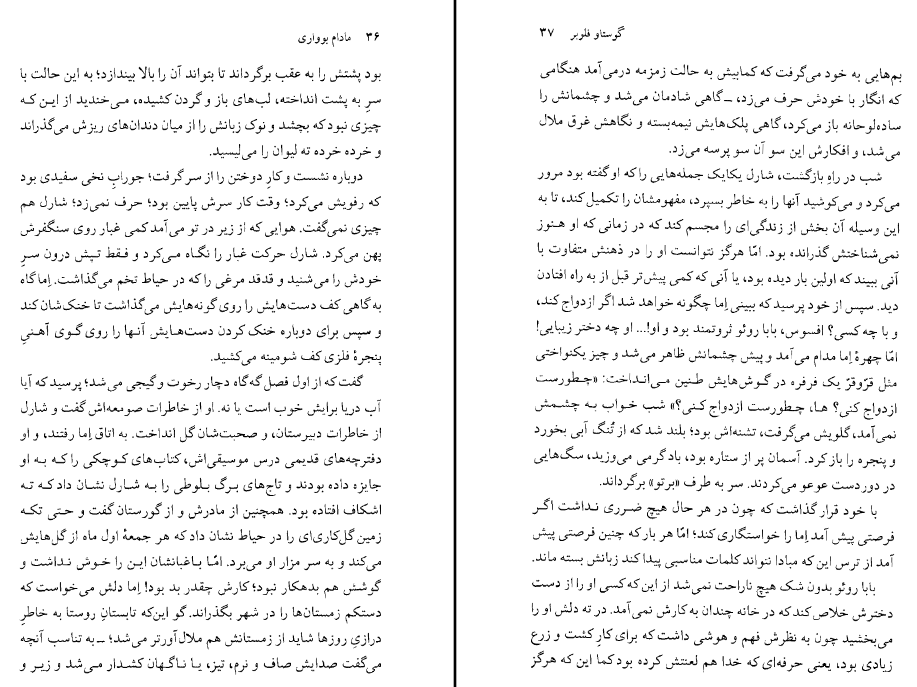 ۳۶ مادام بوواری
بود پشتش را به عقب برگرداند تا بتواند آن را بالا بیندازد؛ به این حالت با
سرِ به پشت انداخته، لب‌های باز و گردن کشیده، می‌خندید از این که
چیزی نبود که بچشد و نوک زبانش را از میان دندان‌های ریزش می‌گذراند
و خرده خرده ته لیوان را می‌لیسید.
دوباره نشست و کارِ دوختن را از سر گرفت؛ جورابِ نخی سفیدی بود
که رفویش می‌کرد؛ وقت کار سرش پایین بود؛ حرف نمی‌زد؛ شارل هم
چیزی نمی‌گفت. هوایی که از زیر در تو می‌آمد کمی غبار روی سنگفرش
پهن می‌کرد. شارل حرکت غبار را نگاه می‌کرد و فقط تپش درون سرِ
خودش را می‌شنید و قدقد مرغی را که در حیاط تخم می‌گذاشت. اِما گاه
به گاهی کف دست‌هایش را روی گونه‌هایش می‌گذاشت تا خنک‌شان کند
و سپس برای دوباره خنک کردن دست‌هایش آنها را روی گوی آهنیِ
پنجرهٔ فلزی کف شومینه می‌کشید.
گفت که از اول فصل گه‌گاه دچار رخوت و گیجی می‌شد؛ پرسید که آیا
آب دریا برایش خوب است یا نه. او از خاطرات صومعه‌اش گفت و شارل
از خاطرات دبیرستان، و صحبت‌شان گل انداخت. به اتاق اِما رفتند، و او
دفترچه‌های قدیمی درس موسیقی‌اش، کتاب‌های کوچکی را که به او
جایزه داده بودند و تاج‌های برگ بلوطی را به شارل نشان داد که ته
اشکاف افتاده بود. همچنین از مادرش و از گورستان گفت و حتی تکه
زمین گل‌کاری‌ای را در حیاط نشان داد که هر جمعهٔ اول ماه از گل‌هایش
می‌کند و به سر مزار او می‌برد. امّا باغبانشان این را خوش نداشت و
گوشش هم بدهکار نبود؛ کارش چقدر بد بود! اِما دلش می‌خواست که
دستکم زمستان‌ها را در شهر بگذراند. گو این‌که تابستانِ روستا به خاطرِ
درازیِ روزها شاید از زمستانش هم ملال‌آورتر می‌شد؛ ــ به تناسب آنچه
می‌گفت صدایش صاف و نرم، تیز، یا ناگهان کشدار می‌شد و زیر و
گوستاو فلوبر ۳۷
بم‌هایی به خود می‌گرفت که کمابیش به حالت زمزمه درمی‌آمد هنگامی
که انگار با خودش حرف می‌زد، ــ گاهی شادمان می‌شد و چشمانش را
ساده‌لوحانه باز می‌کرد، گاهی پلک‌هایش نیمه‌بسته و نگاهش غرق ملال
می‌شد، و افکارش این سو آن سو پرسه می‌زد.
شب در راهِ بازگشت، شارل یکایک جمله‌هایی را که او گفته بود مرور
می‌کرد و می‌کوشید آنها را به خاطر بسپرد، مفهومشان را تکمیل کند، تا به
این وسیله آن بخش از زندگی‌ای را مجسم کند که در زمانی که او هنوز
نمی‌شناختش گذرانده بود. امّا هرگز نتوانست او را در ذهنش متفاوت با
آنی ببیند که اولین بار دیده بود، یا آنی که کمی پیش‌تر قبل از به راه افتادن
دید. سپس از خود پرسید که ببینی اِما چگونه خواهد شد اگر ازدواج کند،
و با چه کسی؟ افسوس، بابا روئو ثروتمند بود و او!... او چه دختر زیبایی!
امّا چهرهٔ اِما مدام می‌آمد و پیش چشمانش ظاهر می‌شد و چیز یکنواختی
مثل قرّوقرّ یک فرفره در گوش‌هایش طنین می‌انداخت: «چطورست
ازدواج کنی؟ ها، چطورست ازدواج کنی؟» شب خواب به چشمش
نمی‌آمد، گلویش می‌گرفت، تشنه‌اش بود؛ بلند شد که از تُنگ آبی بخورد
و پنجره را باز کرد. آسمان پر از ستاره بود، باد گرمی می‌وزید، سگ‌هایی
در دوردست عوعو می‌کردند. سر به طرف «برتو» برگرداند.
با خود قرار گذاشت که چون در هر حال هیچ ضرری نداشت اگر
فرصتی پیش آمد اِما را خواستگاری کند؛ امّا هر بار که چنین فرصتی پیش
آمد از ترس این که مبادا نتواند کلمات مناسبی پیدا کند زبانش بسته ماند.
بابا روئو بدون شک هیچ ناراحت نمی‌شد از این که کسی او را از دست
دخترش خلاص کند که در خانه چندان به کارش نمی‌آمد. در ته دلش او را
می‌بخشید چون به نظرش فهم و هوشی داشت که برای کارِ کشت و زرع
زیادی بود، یعنی حرفه‌ای که خدا هم لعنتش کرده بود کما این که هرگز